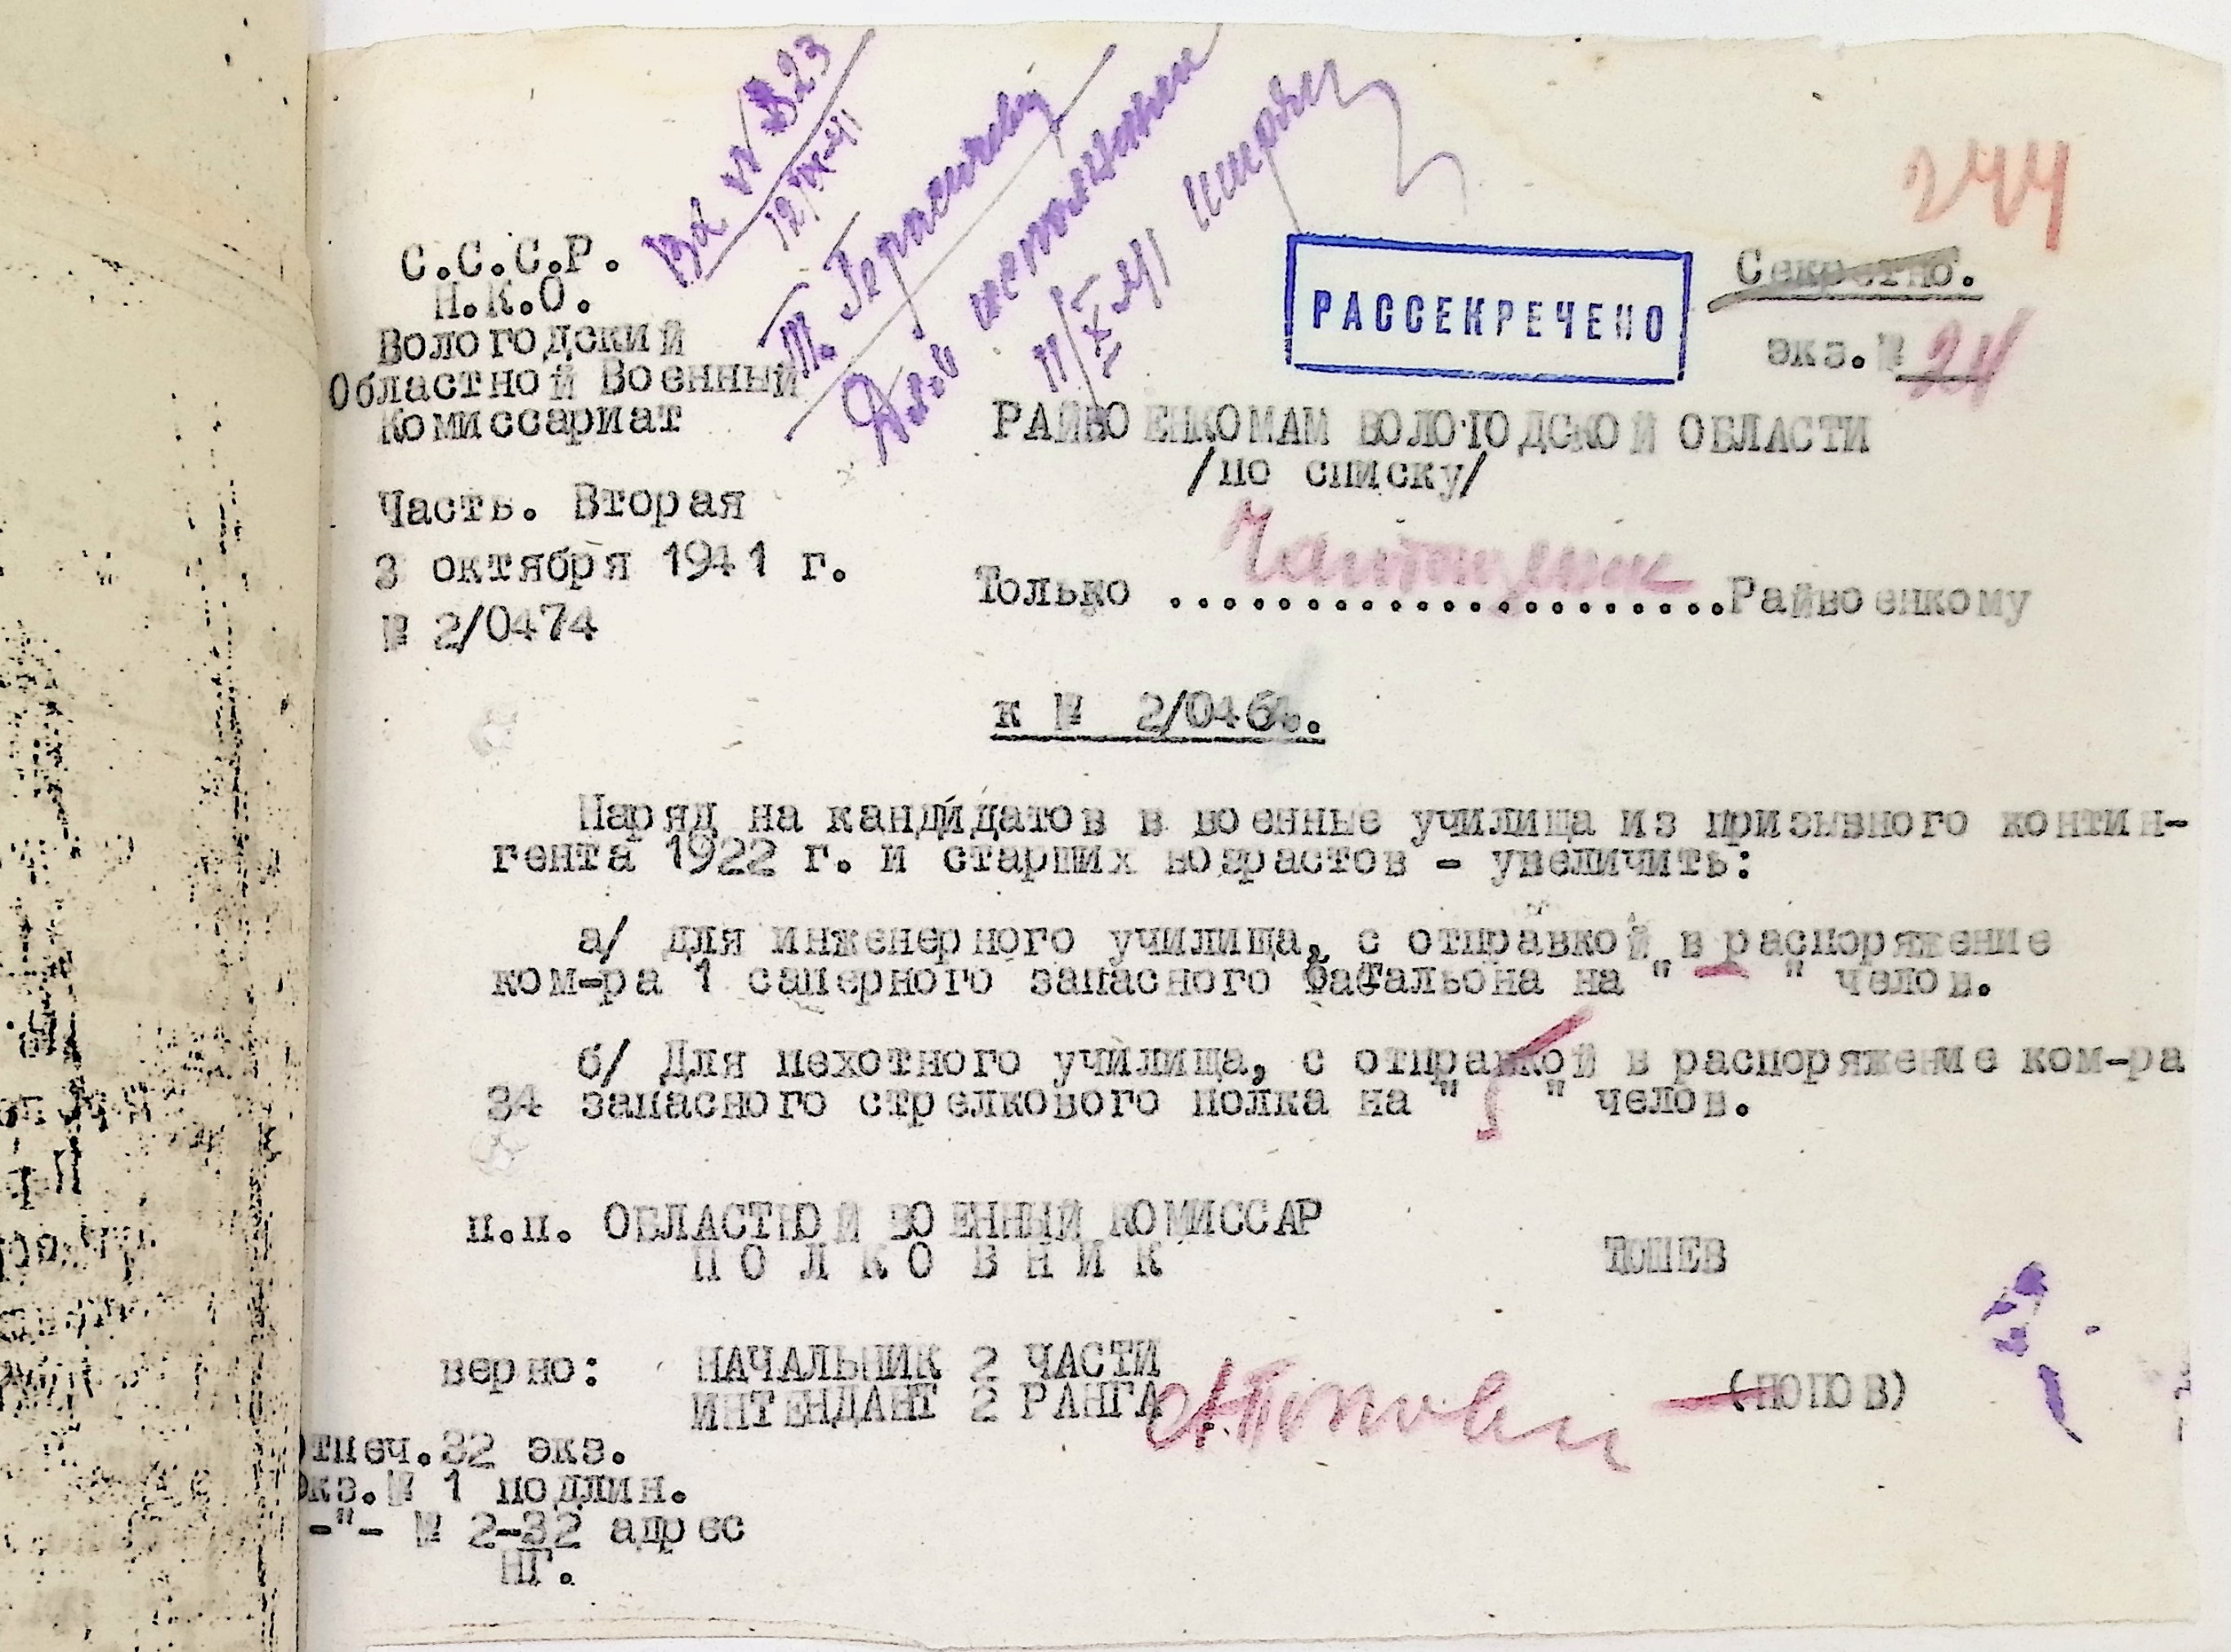 244
Вх №
С.С.С.Р.
Н.К.О.
Вологодский
Областной Военный
Комиссариат
Часть. Вторая
3 октября 1941 г.
№ 2/0474
РАССЕКРЕЧЕНО
Секретно.
экз.№ 24
РАЙВОЕНКОМАМ ВОЛОГОДСКОЙ ОБЛАСТИ
/по списку/
Только ......................Райвоенкому
к № 2/0464.
Наряд на кандидатов в военные училища из призывного контин-
гента 1922 г. и старших возрастов - увеличить:
а/ для инженерного училища, с отправкой в распоряжение
ком-ра 1 саперного запасного батальона на " — " челов.
б/ Для пехотного училища, с отправкой в распоряжение ком-ра
34 запасного стрелкового полка на " 5 " челов.
п.п. ОБЛАСТНОЙ ВОЕННЫЙ КОМИССАР
ПОЛКОВНИК
ТОШЕВ
верно: НАЧАЛЬНИК 2 ЧАСТИ
ИНТЕНДАНТ 2 РАНГА
(ПОПОВ)
отпеч.32 экз.
экз.№ 1 подлин.
-"- № 2-32 адрес
НГ.